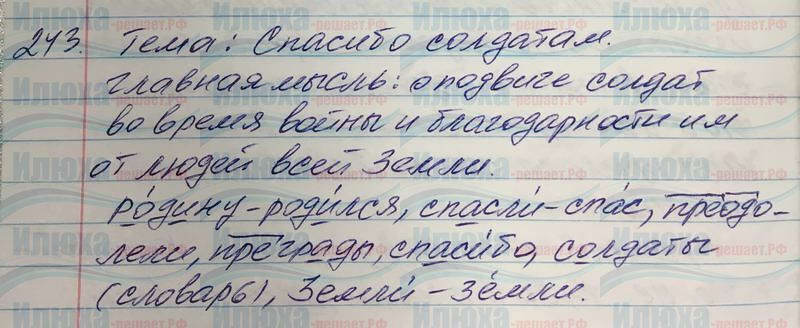 243. Тема: Спасибо солдатам.
Главная мысль: о подвиге солдат
во время войны и благодарности им
от людей всей Земли.
Ро́дину - роди́лся, спасли́ - спа́с, преодо-
лели, преграды, спаси́бо, солдаты
(словарь), Земли́ - зе́мли.